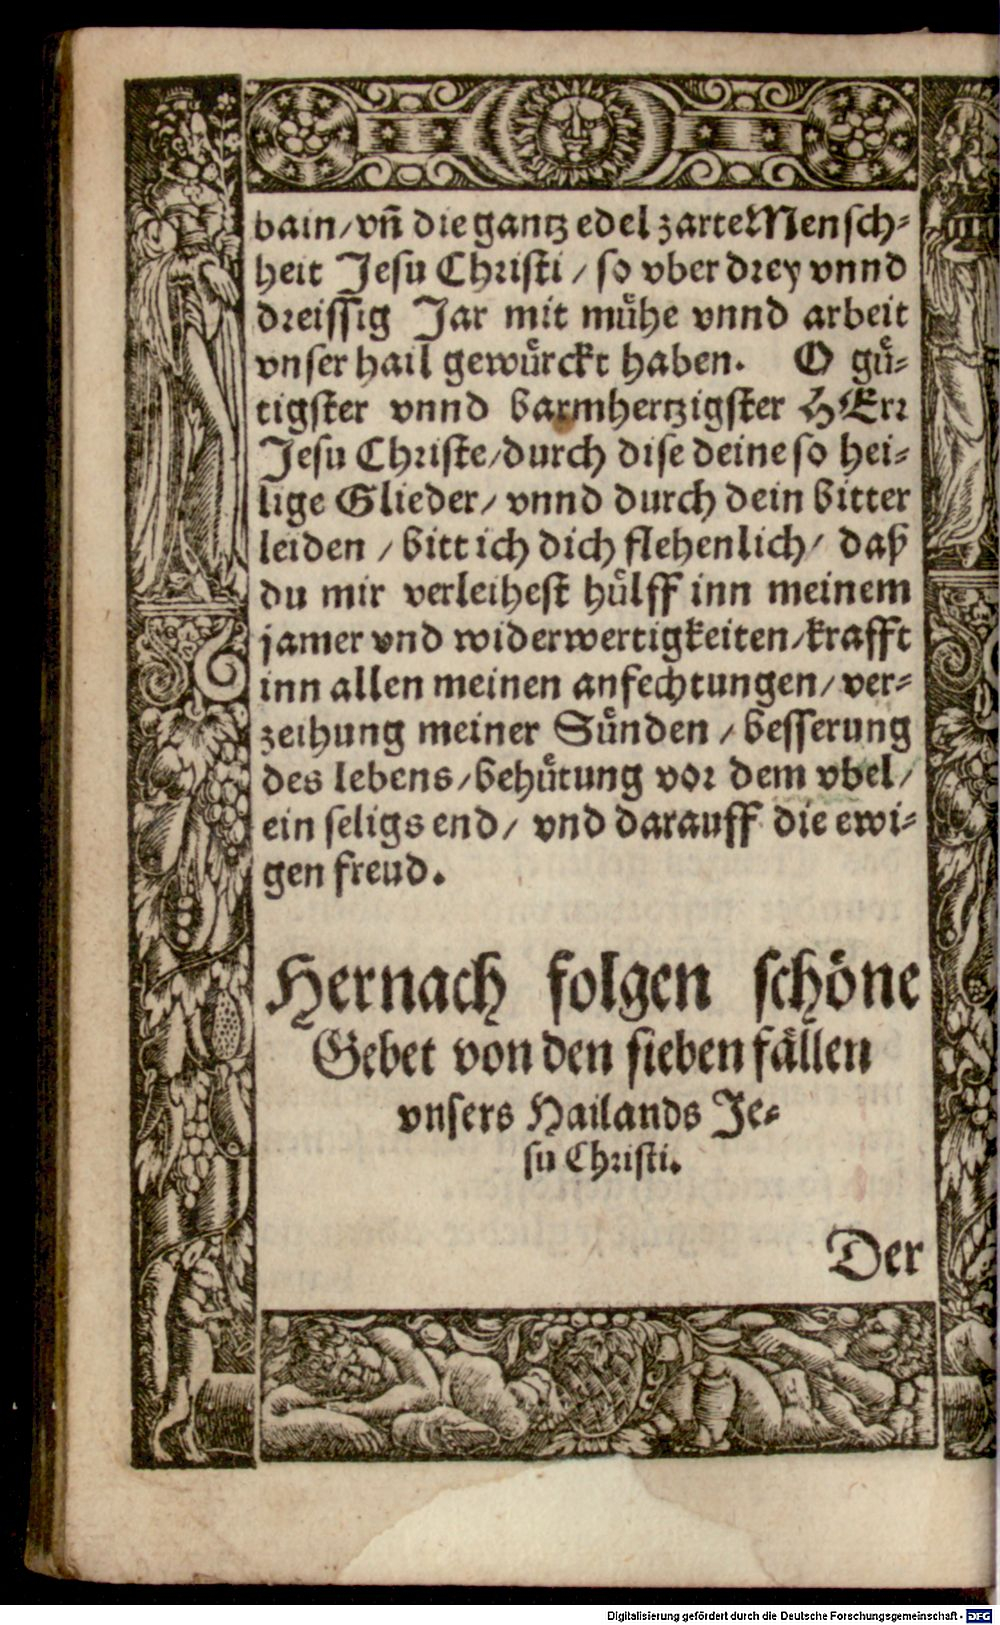 bain/ vñ die gantz edel zarte Mensch⸗
heit Jesu Christi / so vber drey vnnd
dreissig Jar mit muͤhe vnnd arbeit
vnser hail gewuͤrckt haben. O guͤ⸗
tigster vnnd barmhertzigster HErr
Jesu Christe/ durch dise deine so hei⸗
lige Glieder/ vnnd durch dein bitter
leiden / bitt ich dich flehenlich/ daß
du mir verleihest huͤlff inn meinem
jamer vnd widerwertigkeiten/ krafft
inn allen meinen anfechtungen/ ver⸗
zeihung meiner Suͤnden / besserung
des lebens/ behuͤtung vor dem vbel/
ein seligs end/ vnd darauff die ewi⸗
gen freud.
Hernach folgen schöne
Gebet von den sieben faͤllen
vnsers Hailands Je⸗
su Christi.
Der
Digitalisierung gefördert durch die Deutsche Forschungsgemeinschaft - DFG